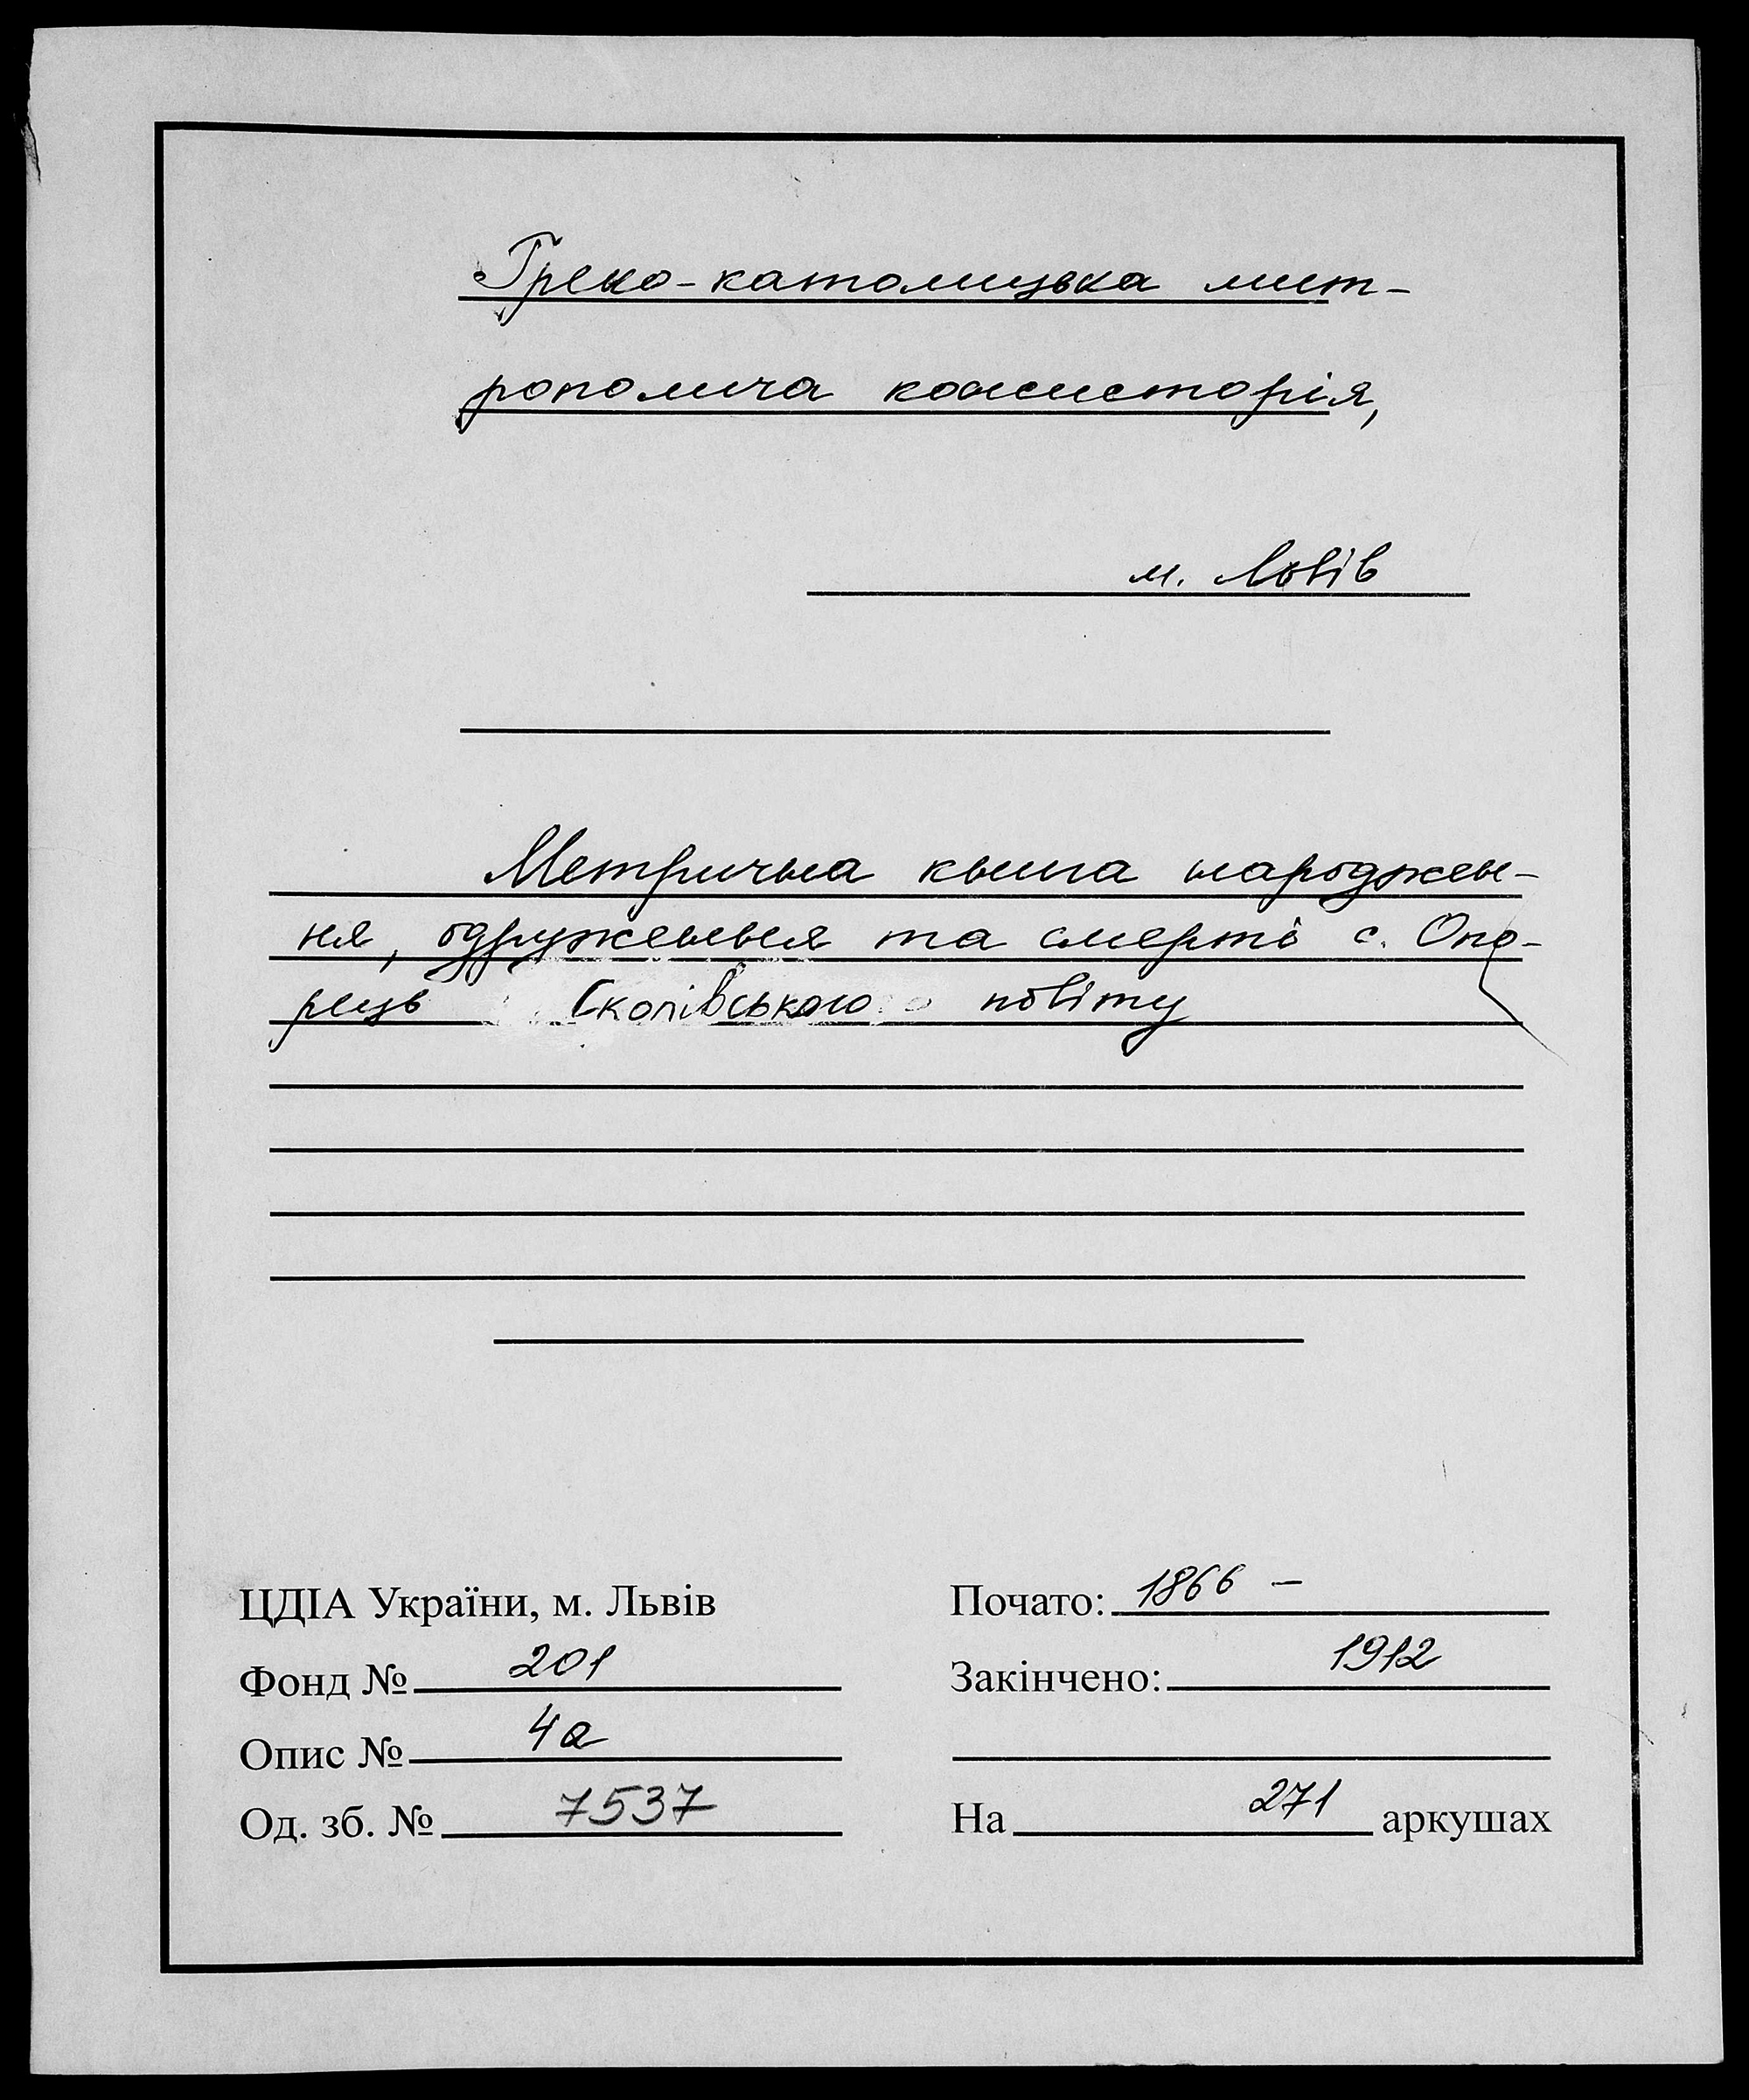 Греко-католицька мит-
рополича консисторія,
м. Львів
Метрична книга народжен-
ня, одруження та смерті с. Опо-
рець Сколівського повіту
ЦДІА України, м. Львів
Фонд № 201
Опис № 4а
Од. зб. № 7537
Почато: 1866 –
Закінчено: 1912
На 271 аркушах